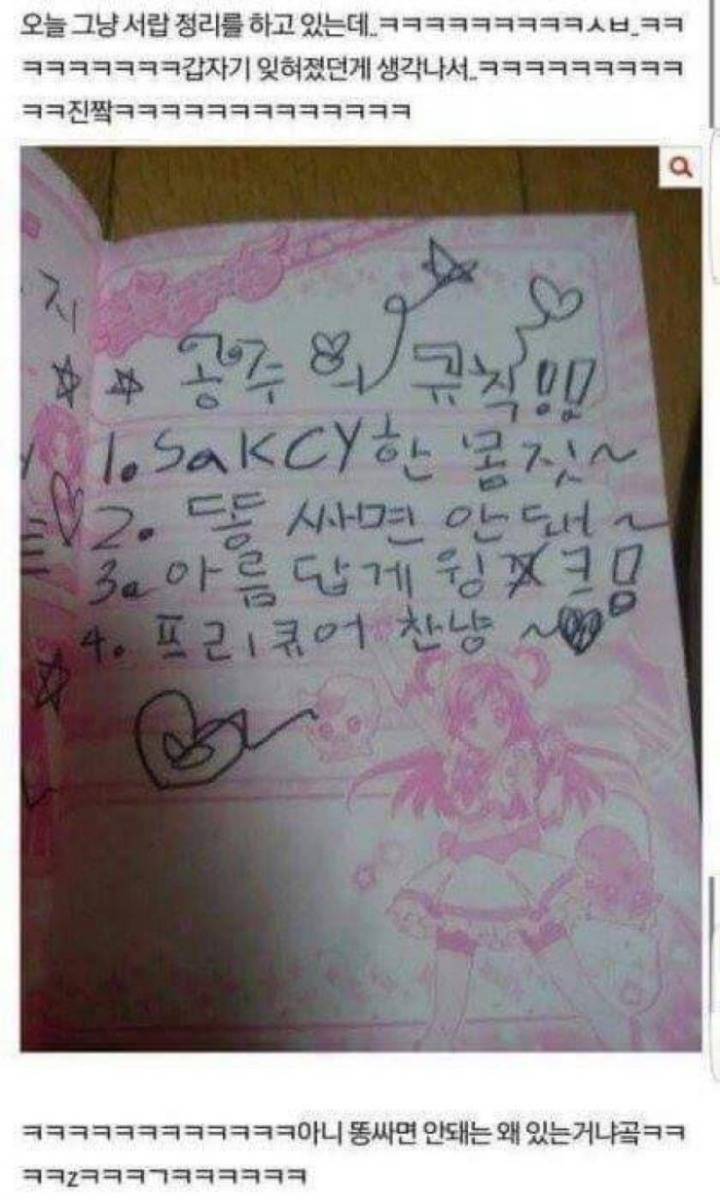 오늘 그냥 서랍 정리를 하고 있는데..ㅋㅋㅋㅋㅋㅋㅋㅋㅋㅅㅂ..ㅋㅋ
ㅋㅋㅋㅋㅋㅋㅋㅋ갑자기 잊혀졌던게 생각나서..ㅋㅋㅋㅋㅋㅋㅋㅋㅋ
ㅋㅋ진짴ㅋㅋㅋㅋㅋㅋㅋㅋㅋㅋㅋㅋㅋ
지
공주의 규칙!!
1. SaKCY한 몸짓~
2. 똥 싸면 안돼~
3. 아름답게 윙크!!
4. 프리큐어 찬냥~
ㅋㅋㅋㅋㅋㅋㅋㅋㅋㅋㅋㅋ아니 똥싸면 안돼는 왜 있는거냐곸ㅋㅋ
ㅋㅋzㅋㅋㅋㄱㅋㅋㅋㅋㅋㅋ